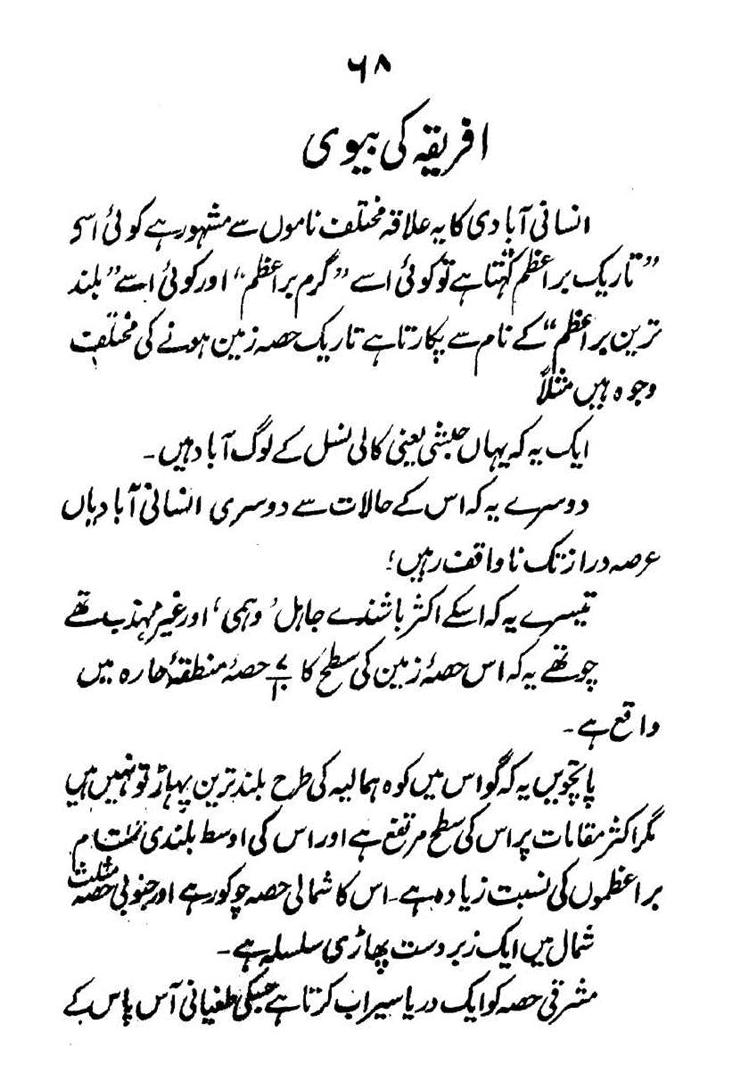 ۶۸
افریقہ کی بیوی
انسانی آبادی کا یہ علاقہ مختلف ناموں سے مشہور ہے کوئی اسے
”تاریک براعظم کہتا ہے تو کوئی اسے ”گرم براعظم“ اور کوئی اسے ”بلند
ترین براعظم“ کے نام سے پکارتا ہے تاریک حصہ زمین ہونے کی مختلف
وجوہ ہیں مثلاً
ایک یہ کہ یہاں حبشی یعنی کالی نسل کے لوگ آباد ہیں۔
دوسرے یہ کہ اس کے حالات سے دوسری انسانی آبادیاں
عرصہ دراز تک ناواقف رہیں!
تیسرے یہ کہ اسکے اکثر باشندے جاہل، وہمی، اور غیر مہذب تھے
چوتھے یہ کہ اس حصۂ زمین کی سطح کا ۷/۱۰ حصۂ منطقۂ حارہ میں
واقع ہے۔
پانچویں یہ کہ گو اس میں کوہ ہمالیہ کی طرح بلند ترین پہاڑ تو نہیں ہیں
مگر اکثر مقامات پر اس کی سطح مرتفع ہے اور اس کی اوسط بلندی تمام
براعظموں کی نسبت زیادہ ہے۔ اس کا شمالی حصہ چوکور ہے اور جنوبی حصہ مثلث
شمال میں ایک زبردست پہاڑی سلسلہ ہے۔
مشرقی حصہ کو ایک دریا سیراب کرتا ہے جسکی طغیانی آس پاس کے